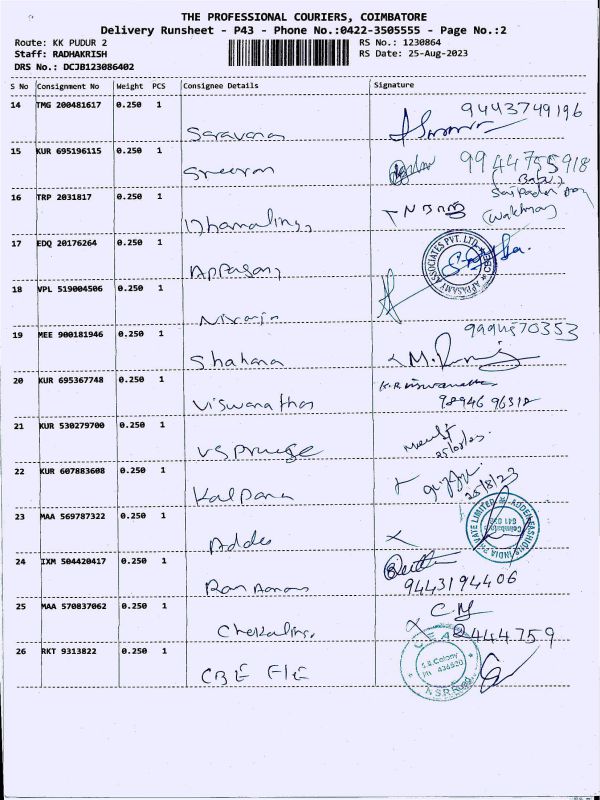 THE PROFESSIONAL COURIERS, COIMBATORE
Delivery Runsheet - P43 - Phone No.:0422-3505555 - Page No.:2
Route: KK PUDUR 2 RS No.: 1230864
Staff: RADHAKRISH RS Date: 25-Aug-2023
DRS No.: DCJB123086402
S No Consignment No Weight PCS Consignee Details Signature
14 TMG 200481617 0.250 1 9443749196
Saravana
15 KUR 695196115 0.250 1 9944755918
Sreeram
16 TRP 2031817 0.250 1
(Watchman)
Dhamaling
17 EDQ 20176264 0.250 1
APPASAMY ASSOCIATES PVT. LTD.
Appasamy
18 VPL 519004506 0.250 1
Niranja
19 MEE 900181946 0.250 1 9994570353
Shahana
20 KUR 695367748 0.250 1 K.R.Viswanathan
Viswanathan 98946 96312
21 KUR 530279700 0.250 1
22 KUR 607883608 0.250 1 25/8/23
Kalpana
23 MAA 569787322 0.250 1
ADDEN FASHIONS INDIA PRIVATE LIMITED
Coimbatore
Adden
24 IXM 504420417 0.250 1
9443194406
25 MAA 570037062 0.250 1
Chokaling
26 RKT 9313822 0.250 1
S.B.Colony
N.S.R.Road
CBE